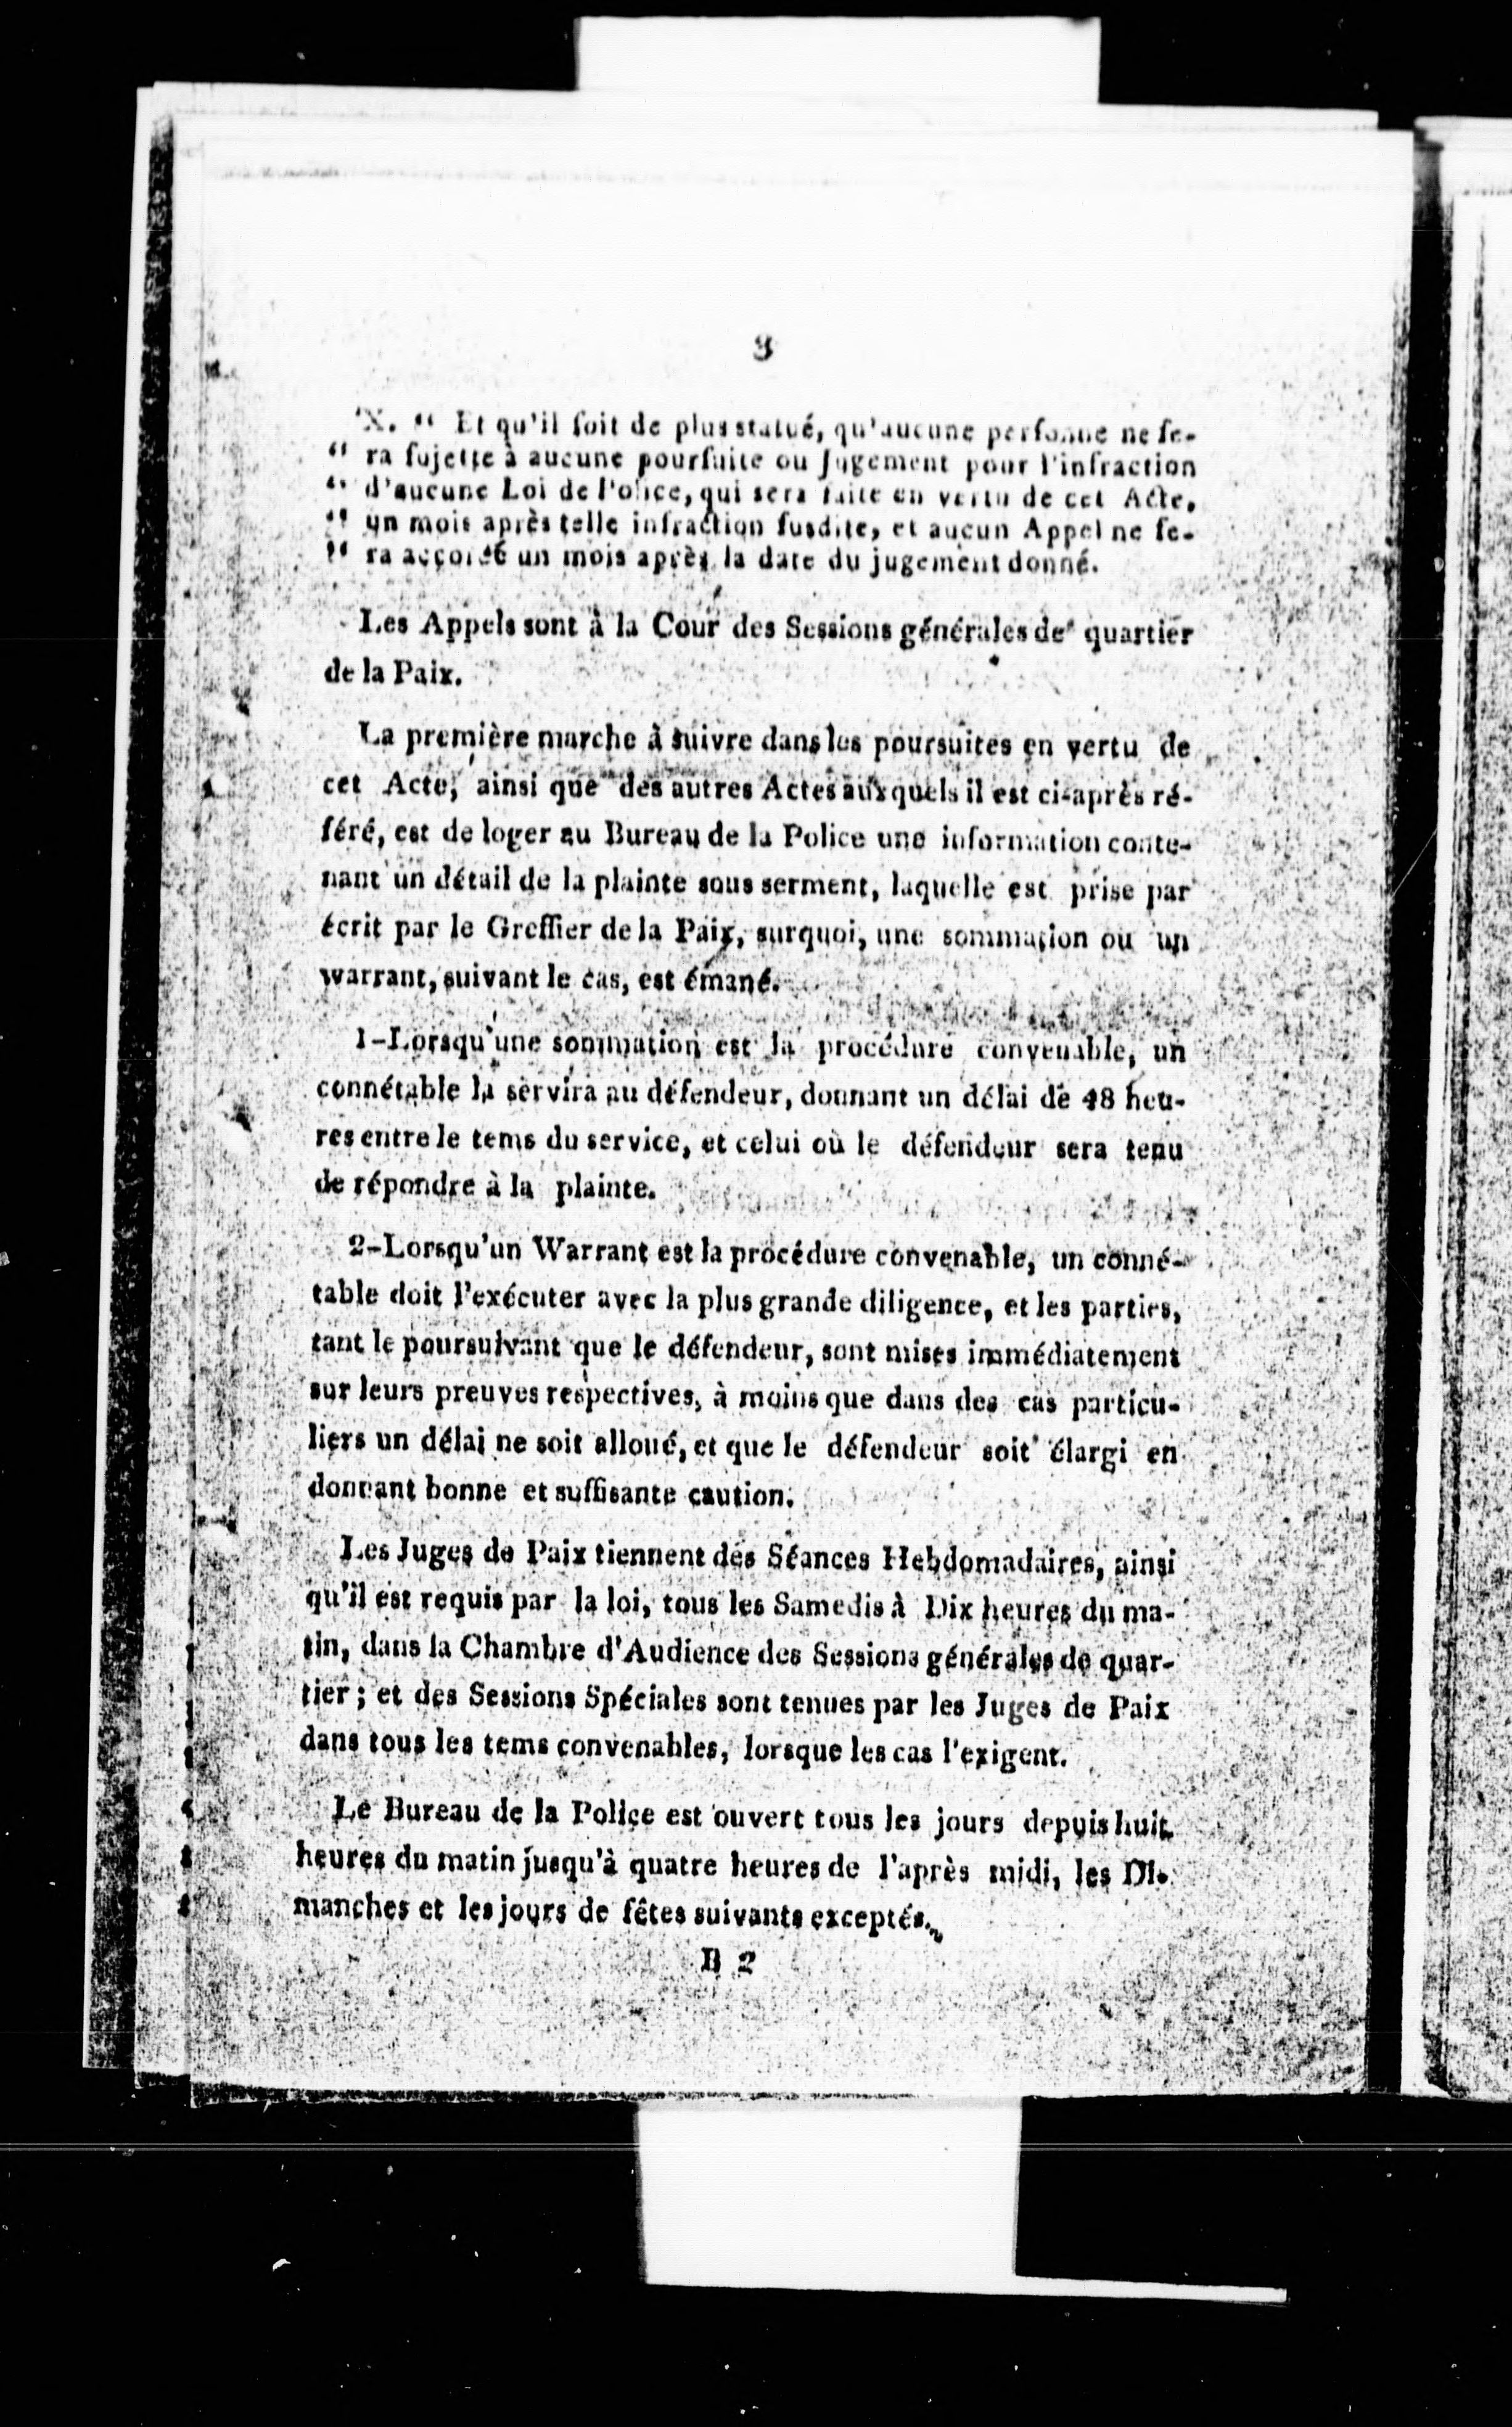 9
X. “ Et qu'il ſoit de plus statué, qu'aucune perſonne ne ſe-
“ ra ſujette à aucune pourſuite ou Jugement pour l'infraction
“ d'aucune Loi de Police, qui sera faite en vertu de cet Acte,
“ un mois après telle infraction ſusdite, et aucun Appel ne ſe-
“ ra accordé un mois après la date du jugement donné.
Les Appels sont à la Cour des Sessions générales de quartier
de la Paix.
La première marche à suivre dans les poursuites en vertu de
cet Acte, ainsi que des autres Actes auxquels il est ci-après ré-
féré, est de loger au Bureau de la Police une information conte-
nant un détail de la plainte sous serment, laquelle est prise par
écrit par le Greffier de la Paix, surquoi, une sommation ou un
warrant, suivant le cas, est émané.
1-Lorsqu'une sommation est la procédure convenable, un
connétable la servira au défendeur, donnant un délai de 48 heu-
res entre le tems du service, et celui où le défendeur sera tenu
de répondre à la plainte.
2-Lorsqu'un Warrant est la procédure convenable, un conné-
table doit l'exécuter avec la plus grande diligence, et les parties,
tant le poursuivant que le défendeur, sont mises immédiatement
sur leurs preuves respectives, à moins que dans des cas particu-
liers un délai ne soit alloué, et que le défendeur soit élargi en
donnant bonne et suffisante caution.
Les Juges de Paix tiennent des Séances Hebdomadaires, ainsi
qu'il est requis par la loi, tous les Samedis à Dix heures du ma-
tin, dans la Chambre d'Audience des Sessions générales de quar-
tier ; et des Sessions Spéciales sont tenues par les Juges de Paix
dans tous les tems convenables, lorsque les cas l'exigent.
Le Bureau de la Police est ouvert tous les jours depuis huit
heures du matin jusqu'à quatre heures de l'après midi, les Di-
manches et les jours de fêtes suivants exceptés.
B 2